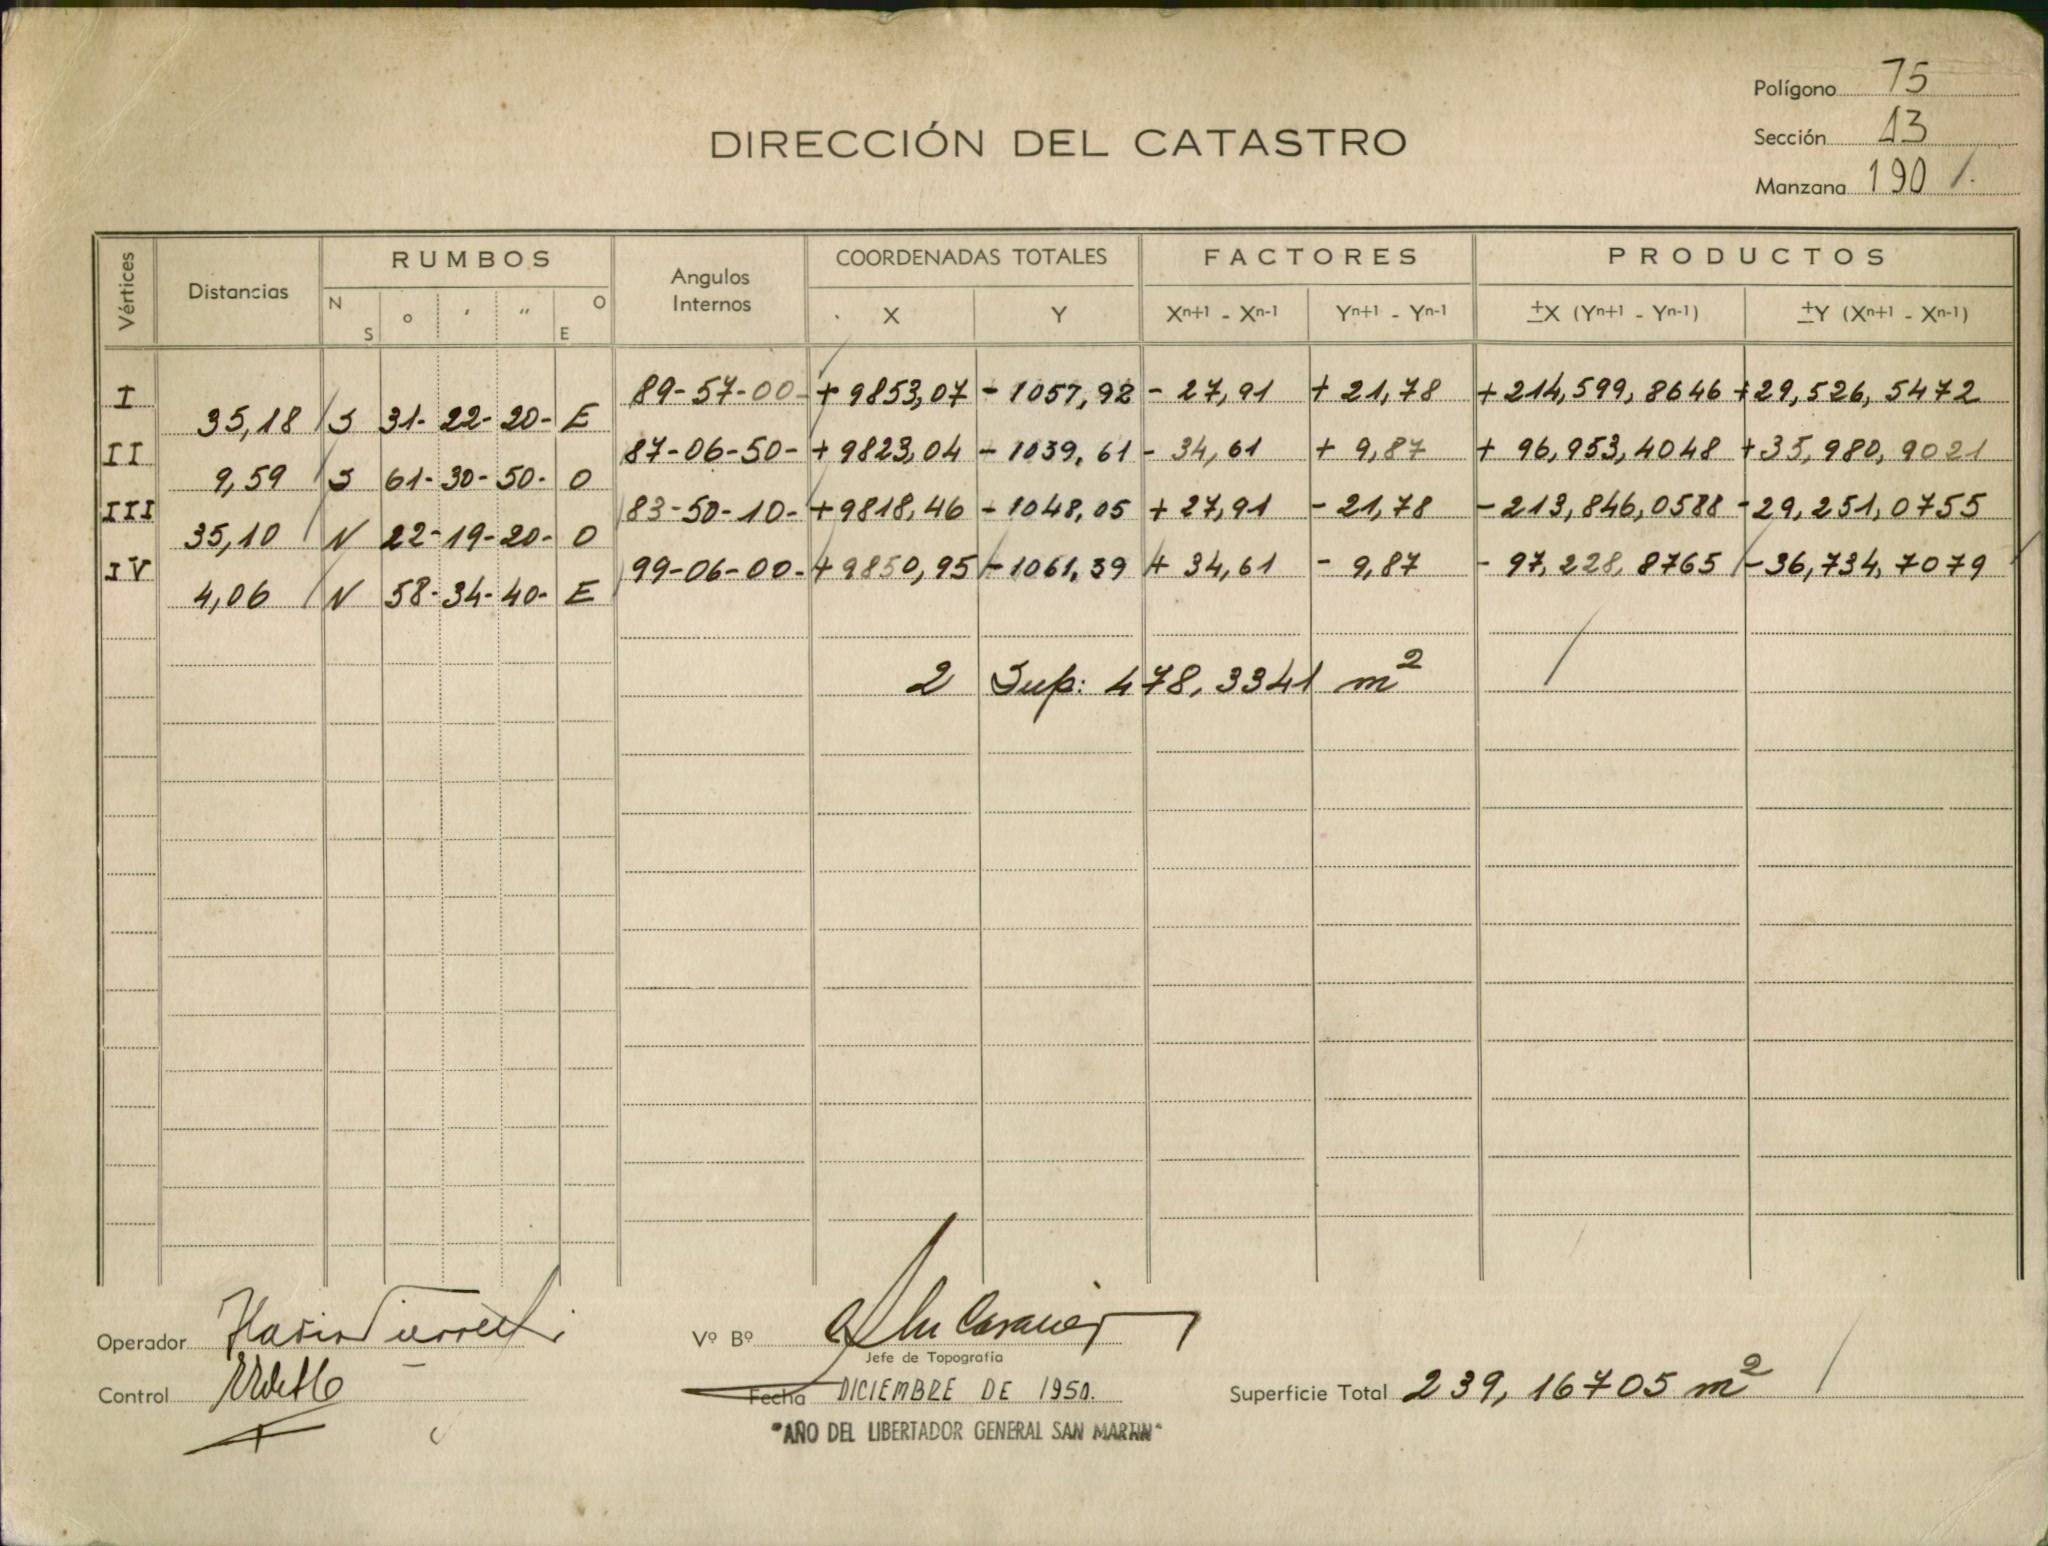 Polígono 75
DIRECCIÓN DEL CATASTRO
Sección 13
Manzana 190 /.
Vértices Distancias RUMBOS Angulos Internos COORDENADAS TOTALES FACTORES PRODUCTOS
N S ° ' '' O E X Y Xn+1 - Xn-1 Yn+1 - Yn-1 ±X (Yn+1 - Yn-1) ±Y (Xn+1 - Xn-1)
I 89-57-00- +9853,07 -1057,92 - 27,91 + 21,78 +214,599,8646 +29,526,5472
35,18 S 31- 22- 20- E
II 87-06-50- +9823,04 -1039,61 - 34,61 + 9,87 + 96,953,4048 +35,980,9021
9,59 S 61- 30- 50- O
III 83-50-10- +9818,46 -1048,05 + 27,91 - 21,78 -213,846,0588 -29,251,0755
35,10 N 22- 19- 20- O
IV 99-06-00- +9850,95 -1061,39 + 34,61 - 9,87 - 97,228,8765 -36,734,7079
4,06 N 58- 34- 40- E
2 Sup: 478,3341 m²
Operador
Vº Bº
Jefe de Topografía
Control
Fecha DICIEMBRE DE 1950.
Superficie Total 239,16705 m²
"AÑO DEL LIBERTADOR GENERAL SAN MARTIN"